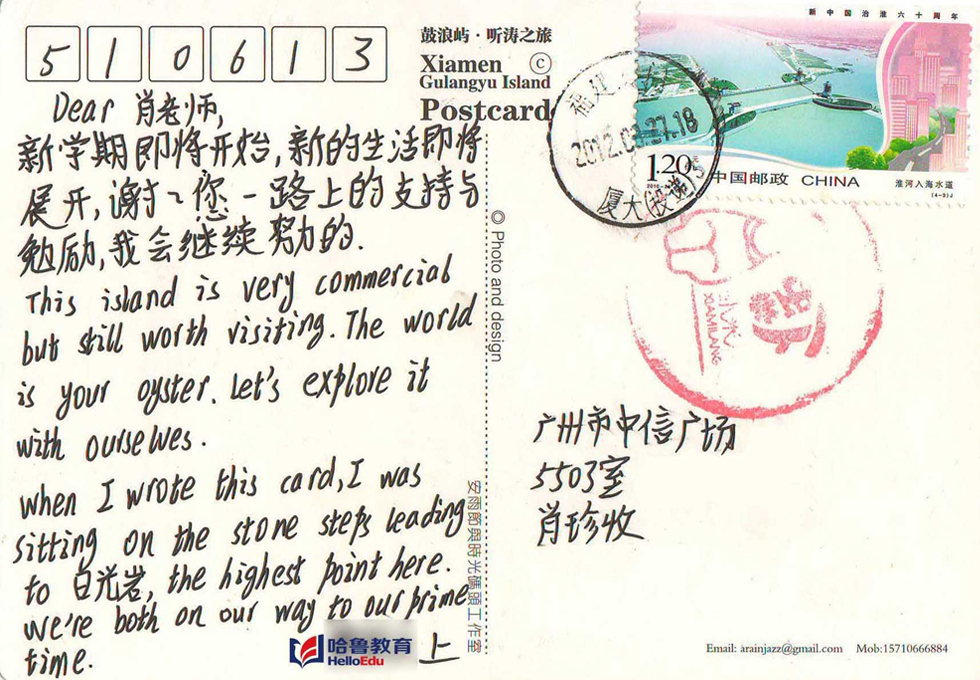 510613
鼓浪屿·听涛之旅
Xiamen ©
Gulangyu Island
Postcard
新中国治淮六十周年
1.20元
中国邮政 CHINA
淮河入海水道
(4-3)J
福建
2012.0 .27.18
厦大(投递)5
Dear 肖老师,
新学期即将开始,新的生活即将
展开,谢谢您一路上的支持与
勉励,我会继续努力的.
This island is very commercial
but still worth visiting. The world
is your oyster. Let's explore it
with ourselves.
When I wrote this card, I was
sitting on the stone steps leading
to 日光岩, the highest point here.
We're both on our way to our prime
time.
上
哈鲁教育
HelloEdu
© Photo and design
安雨節與時光碼頭工作室
XIAMILANG
广州市中信广场
5503室
肖珍收
Email: arainjazz@gmail.com Mob:15710666884